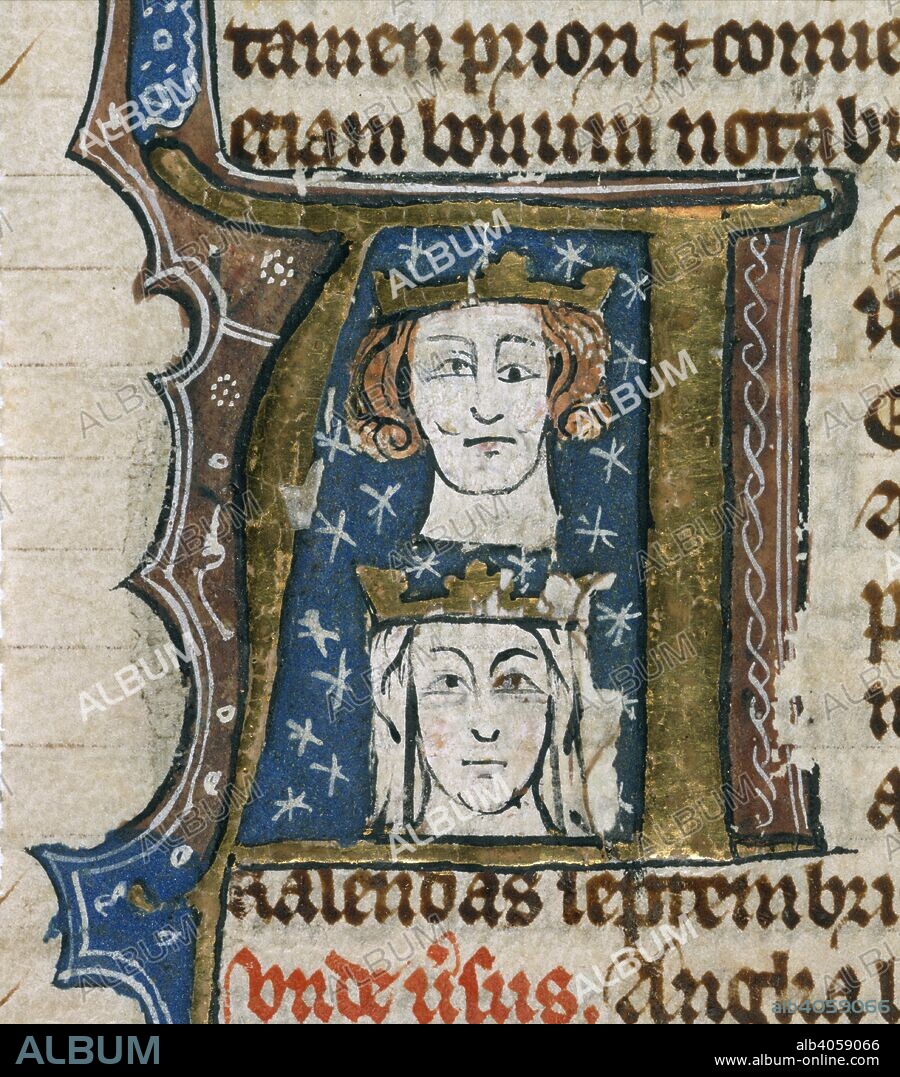 tamen priori ⁊ conue
etiam bonum notabi
A
kalendas septembri
Vnde ũsus. Anglia
ALBUM
alb4059066
ALBUM
alb4059066
www.album-online.com